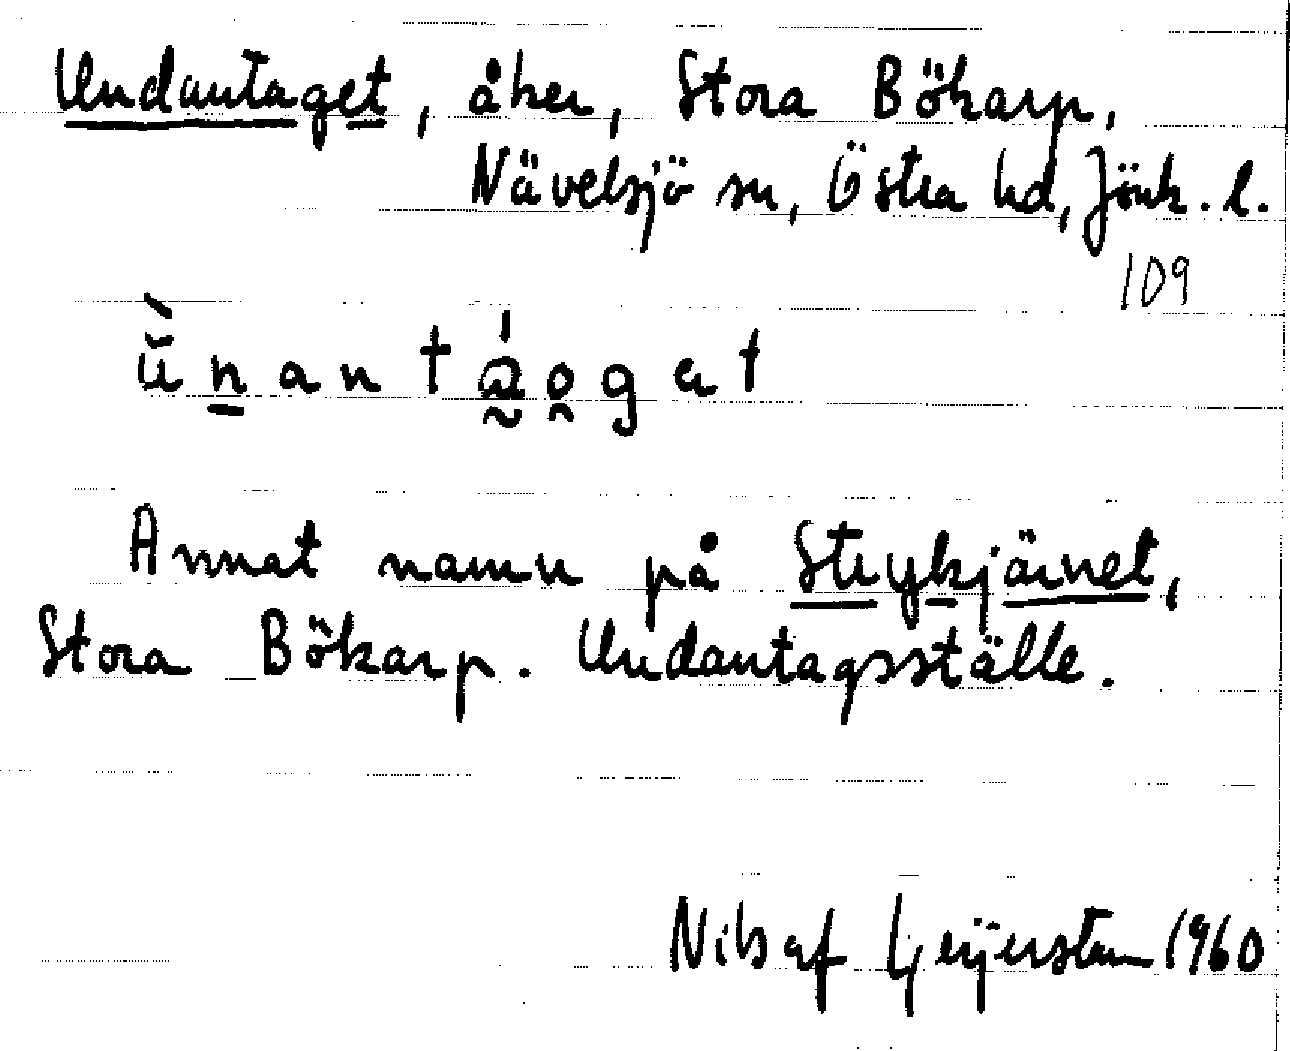 Undantaget, åker, Stora Bökarp,
Nävelsjö sn, Östra hd, Jönk. l.
109
ù̆n̲anta̰̍o̯gat
Annat namn på Strykjärnet,
Stora Bökarp. Undantagsställe.
Nils af Geijerstam 1960